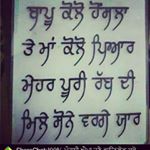 ਬਾਪੂ ਕੋਲੋ ਹੌਂਸਲਾ
ਤੇ ਮਾਂ ਕੋਲੋ ਪਿਆਰ
ਮੇਹਰ ਪੂਰੀ ਰੱਬ ਦੀ
ਮਿਲੇ ਸੋਨੇ ਵਰਗੇ ਯਾਰ